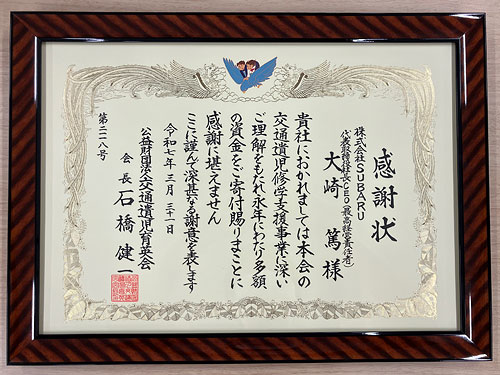 感謝状
株式会社SUBARU
代表取締役社長CEO(最高経営責任者)
大崎 篤 様
貴社におかれましては本会の
交通遺児修学支援事業に深い
ご理解をもたれ永年にわたり多額
の資金をご寄付賜りまことに
感謝に堪えません
ここに謹んで深甚なる謝意を表します
令和七年三月三十一日
公益財団法人交通遺児育英会
会長 石橋健一
第二二八号